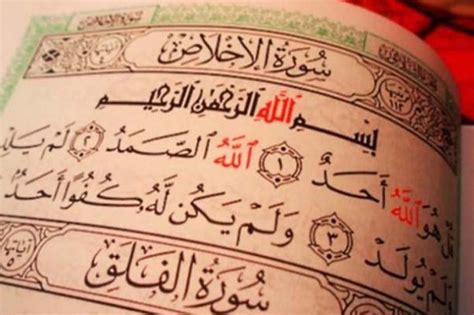 سُورَةُ الإِخْلَاصِ
ترتيبها ١١٢
بِسْمِ ٱللَّهِ ٱلرَّحْمَٰنِ ٱلرَّحِيمِ
قُلْ هُوَ ٱللَّهُ أَحَدٌ ١ ٱللَّهُ ٱلصَّمَدُ ٢ لَمْ يَلِدْ
وَلَمْ يُولَدْ ٣ وَلَمْ يَكُن لَّهُۥ كُفُوًا أَحَدٌ
سُورَةُ الفَلَقِ
آياتها